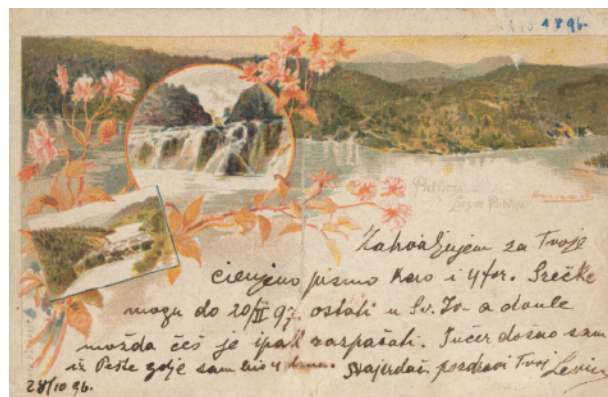 1896.
Plitvica
Zahvaljujem za Tvoje
cienjeno pismo kao i 4 for. Srećke
mogu do 20/II 97. ostati u Sv. Iv. a dotle
možda ćeš je ipak razpačati. Jučer došao sam
iz Pešte gdje sam bio 4 dana. pozdravi Tvoj
28/10 96.